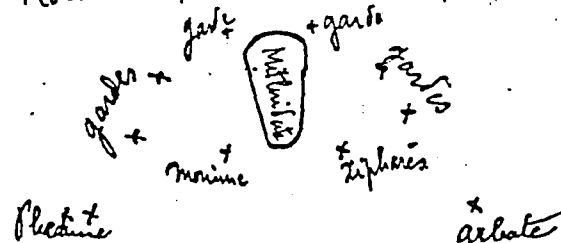 garde garde
gardes gardes
Mithridate
monime Xipharès
Phœdime arbate